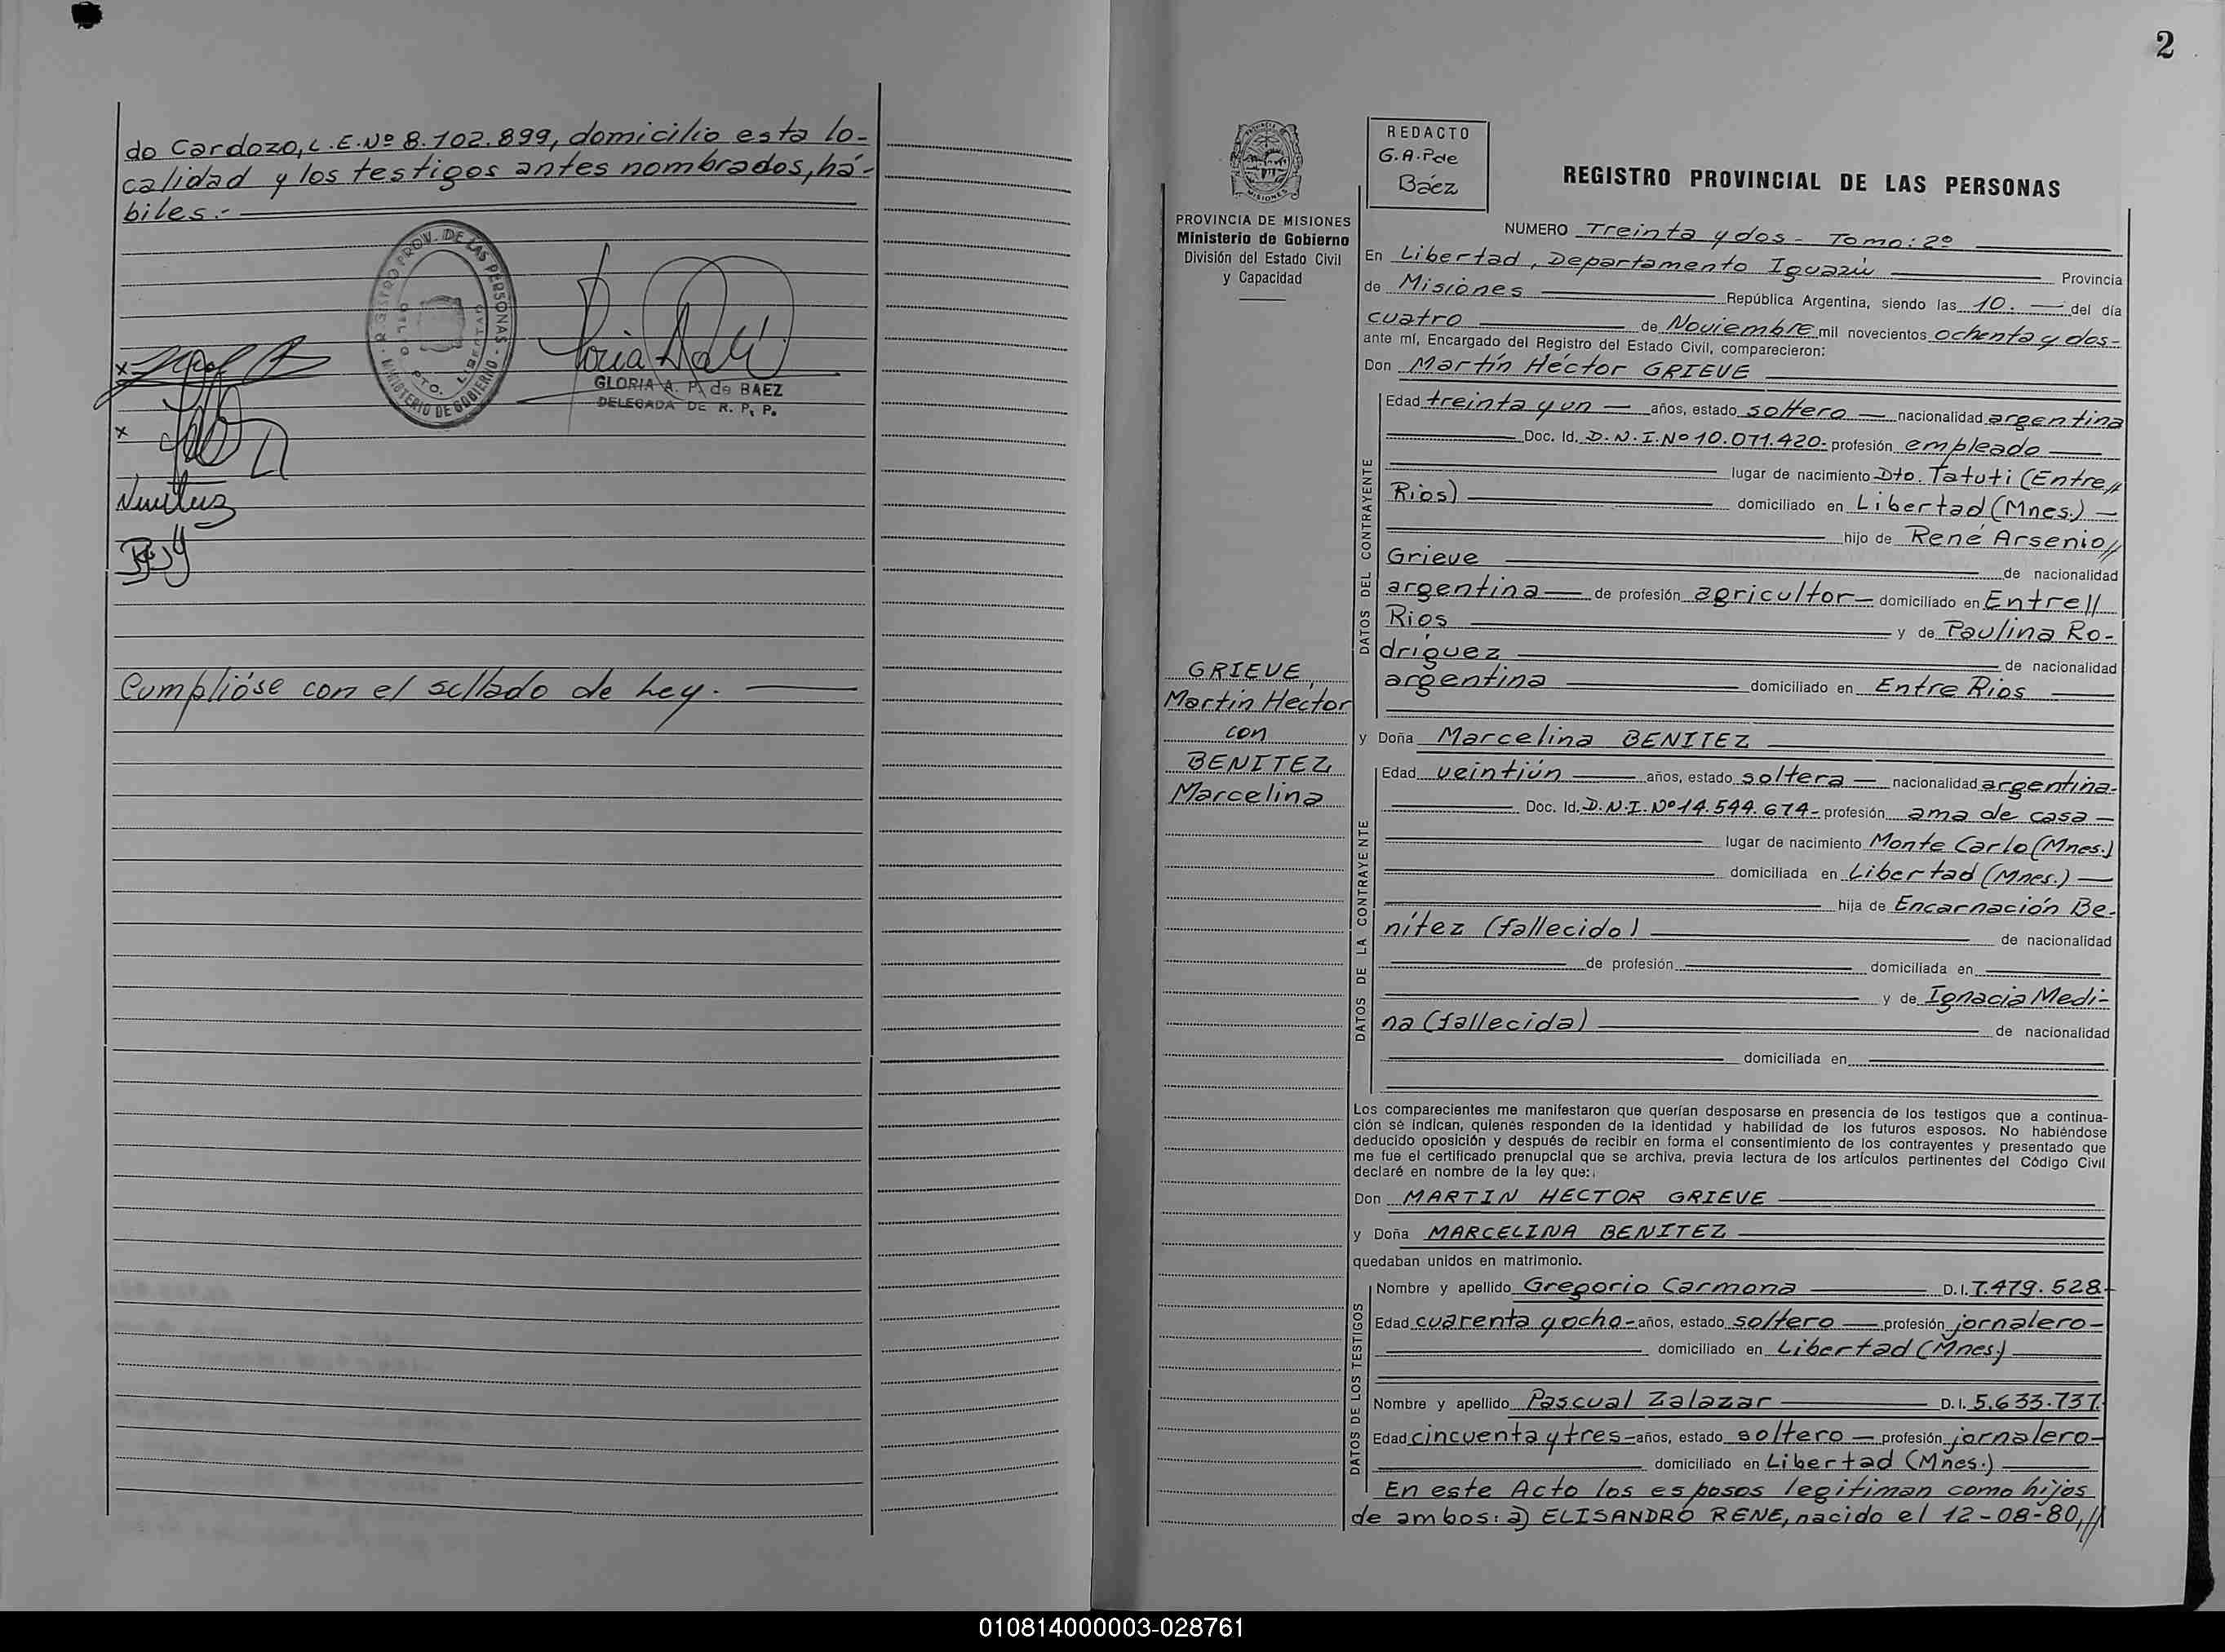 do Cardozo, L.E.Nº 8.102.899, domicilio esta lo-
calidad y los testigos antes nombrados, há-
biles.-
REGISTRO PROV. DE LAS PERSONAS
MINISTERIO DE GOBIERNO
PTO. LIBERTAD
GLORIA A. P. de BAEZ
DELEGADA DE R. P. P.
Cumplióse con el sellado de Ley.
2
MISIONES
PROVINCIA DE MISIONES
Ministerio de Gobierno
División del Estado Civil
y Capacidad
REDACTO
G.A.P de
Báez
REGISTRO PROVINCIAL DE LAS PERSONAS
NUMERO Treinta y dos - Tomo: 2º
En Libertad, Departamento Iguazú Provincia
de Misiones República Argentina, siendo las 10. del día
cuatro de Noviembre mil novecientos ochenta y dos-
ante mí, Encargado del Registro del Estado Civil, comparecieron:
Don Martín Héctor GRIEVE
DATOS DEL CONTRAYENTE
Edad treinta y un años, estado soltero nacionalidad argentina
Doc. Id. D.N.I.Nº 10.071.420- profesión empleado
lugar de nacimiento Dto. Tatuti (Entre//
Rios) domiciliado en Libertad (Mnes.)
hijo de René Arsenio//
Grieve de nacionalidad
argentina de profesión agricultor domiciliado en Entre//
Rios y de Paulina Ro-
dríguez de nacionalidad
argentina domiciliado en Entre Rios
GRIEVE,
Martin Hector
con
BENITEZ
Marcelina
y Doña Marcelina BENITEZ
DATOS DE LA CONTRAYENTE
Edad veintiún años, estado soltera nacionalidad argentina-
Doc. Id. D.N.I. Nº 14.544.674- profesión ama de casa
lugar de nacimiento Monte Carlo (Mnes.)
domiciliada en Libertad (Mnes.)
hija de Encarnación Be-
nítez (fallecido) de nacionalidad
de profesión domiciliada en
y de Ignacia Medi-
na (fallecida) de nacionalidad
domiciliada en
Los comparecientes me manifestaron que querían desposarse en presencia de los testigos que a continua-
ción se indican, quienes responden de la identidad y habilidad de los futuros esposos. No habiéndose
deducido oposición y después de recibir en forma el consentimiento de los contrayentes y presentado que
me fue el certificado prenupcial que se archiva, previa lectura de los artículos pertinentes del Código Civil
declaré en nombre de la ley que:
Don MARTIN HECTOR GRIEVE
y Doña MARCELINA BENITEZ
quedaban unidos en matrimonio.
DATOS DE LOS TESTIGOS
Nombre y apellido Gregorio Carmona D.I. 7.479.528-
Edad cuarenta y ocho- años, estado soltero profesión jornalero-
domiciliado en Libertad (Mnes)
Nombre y apellido Pascual Zalazar D.I. 5.633.737.
Edad cincuenta y tres- años, estado soltero profesión jornalero-
domiciliado en Libertad (Mnes.)
En este Acto los esposos legitiman como hijos
de ambos: a) ELISANDRO RENE, nacido el 12-08-80,//
010814000003-028761